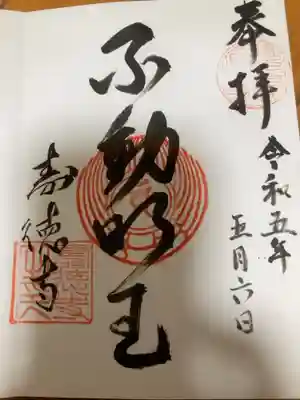 奉拝
令和五年
五月六日
不動明王
寿徳寺